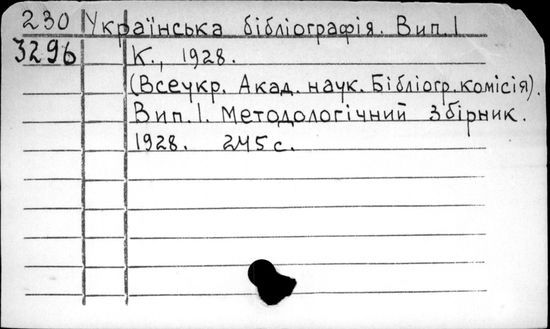 230 Українська бібліографія. Вип. 1
3296 К., 1928.
(Всеукр. Акад. наук. Бібліогр. комісія).
Вип. 1. Методологічний збірник.
1928. 245 с.